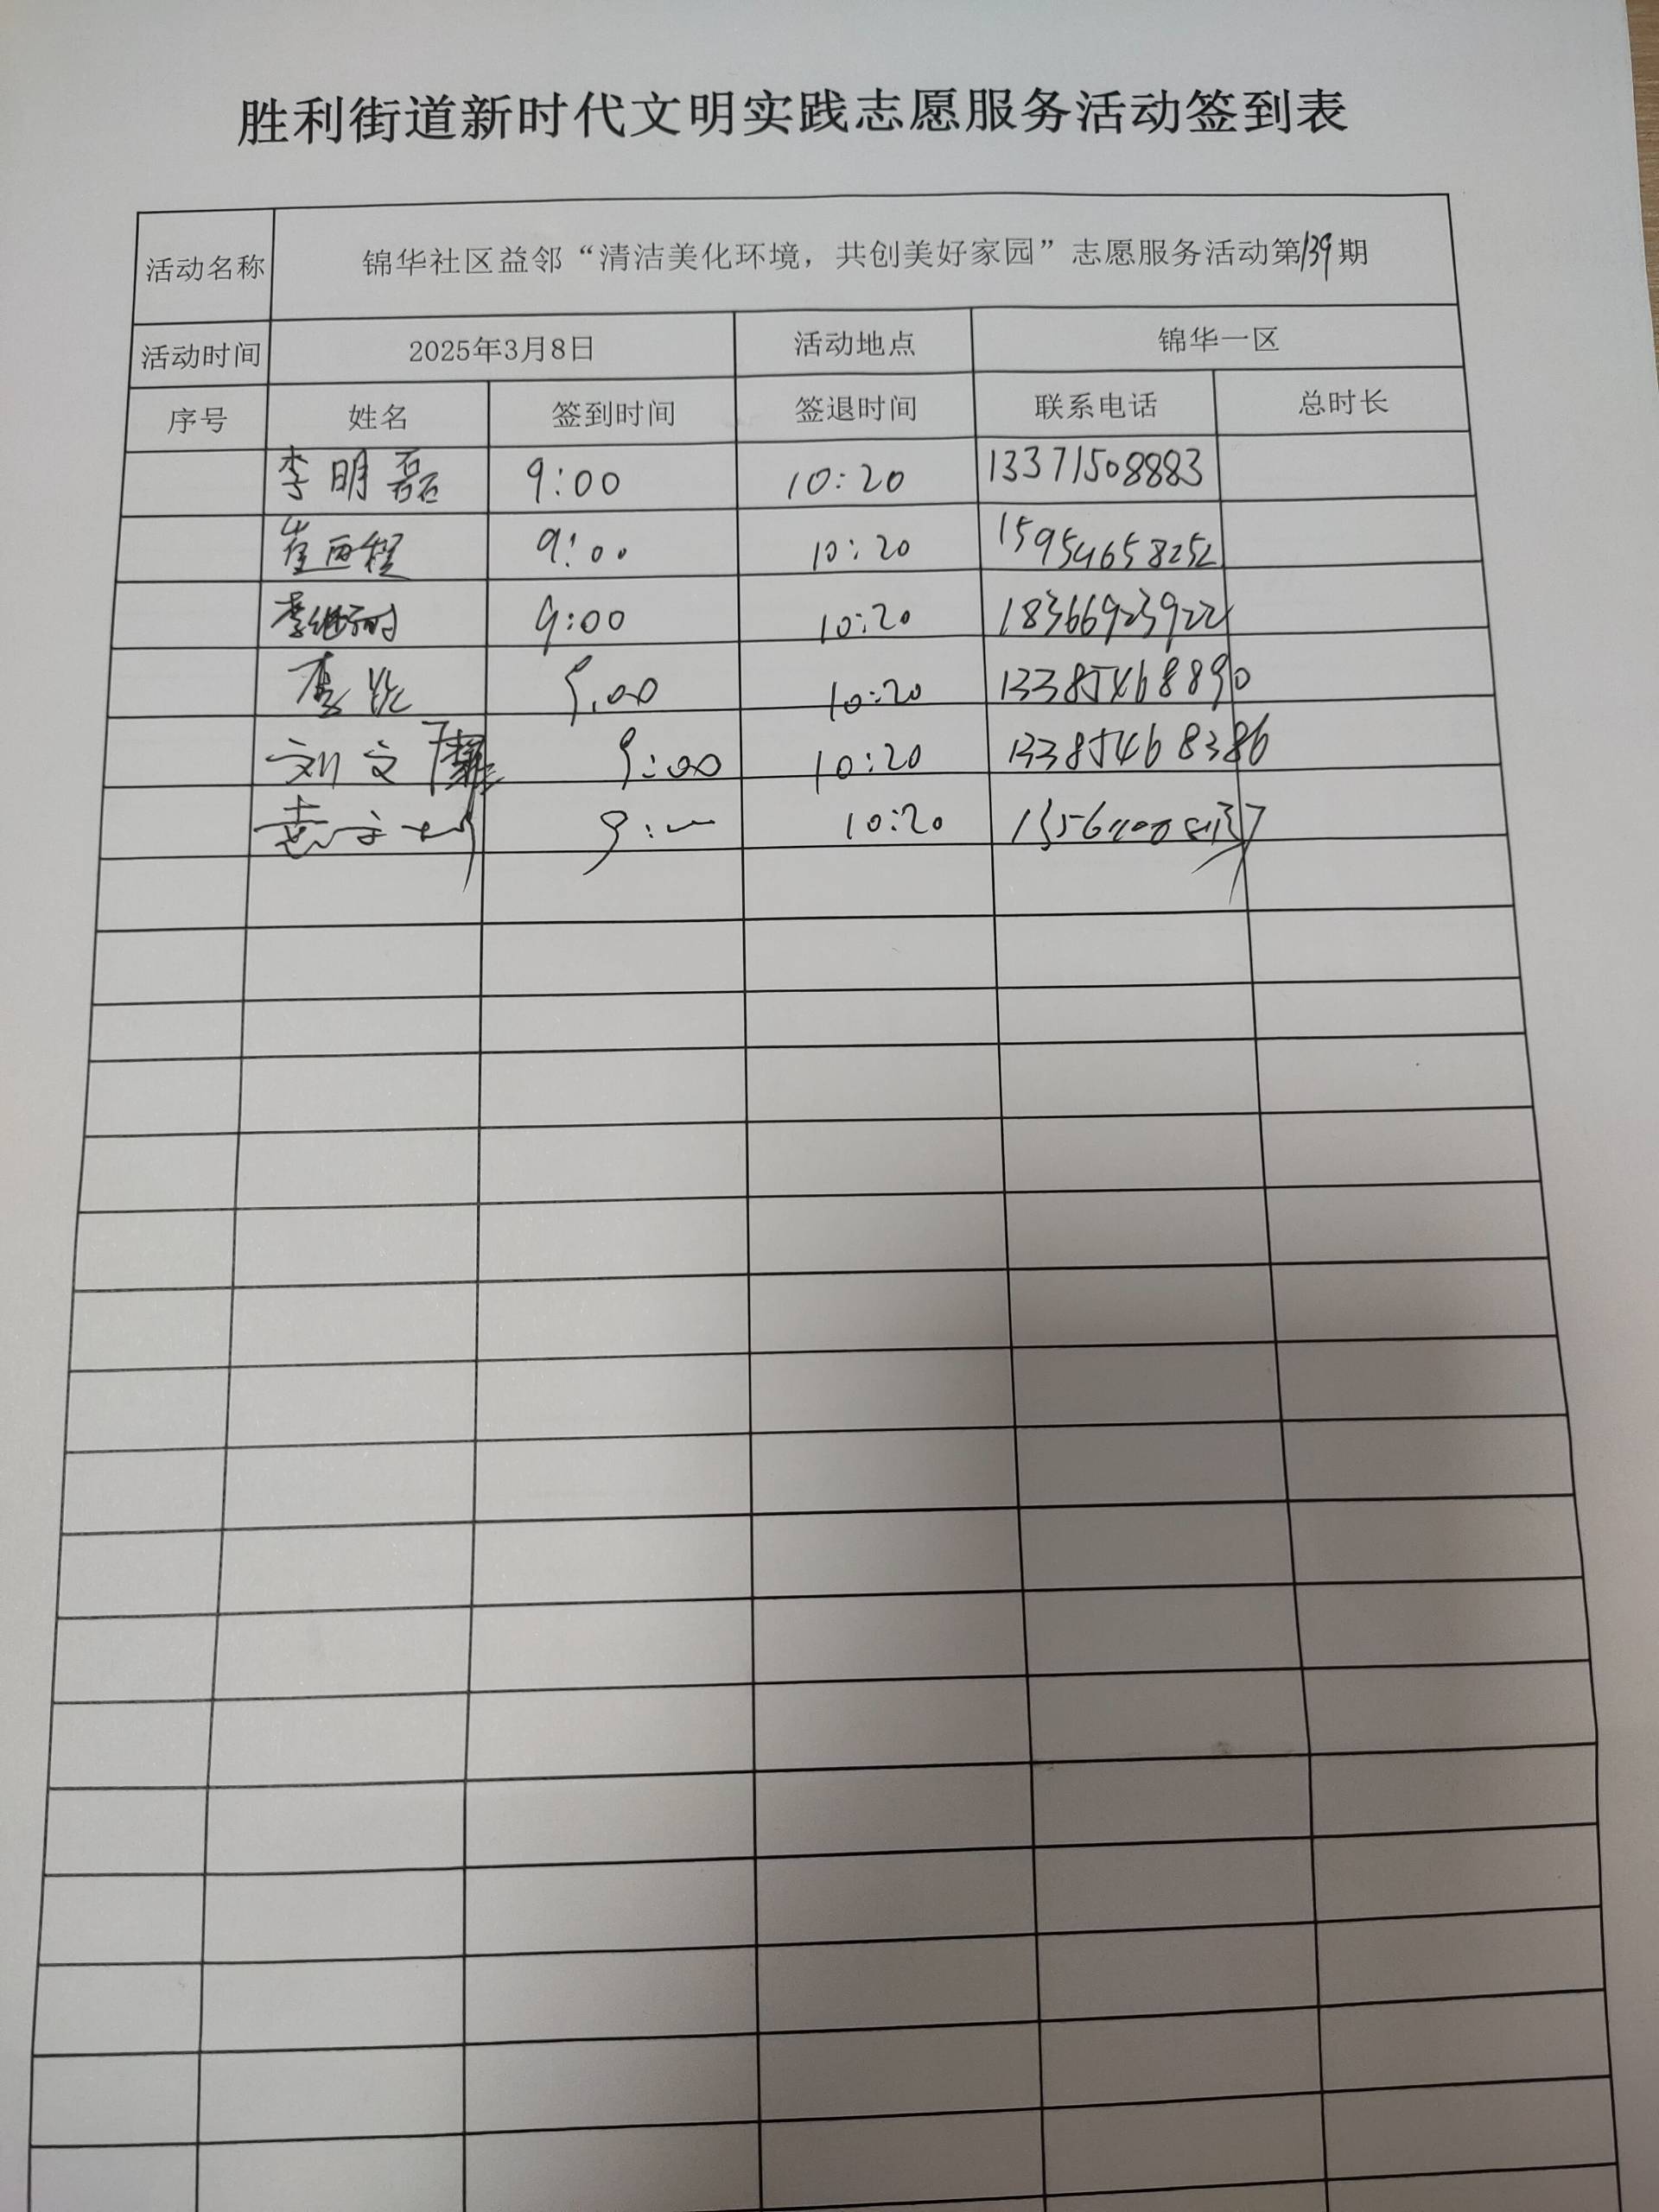 胜利街道新时代文明实践志愿服务活动签到表
活动名称 锦华社区益邻“清洁美化环境，共创美好家园”志愿服务活动第139期
活动时间 2025年3月8日 活动地点 锦华一区
序号 姓名 签到时间 签退时间 联系电话 总时长
李明磊 9:00 10:20 13371508883
崔西程 9:00 10:20 15954658252
李继 9:00 10:20 18366923922
李 9:00 10:20 13385468890
刘文 9:00 10:20 13385468386
袁 9:00 10:20